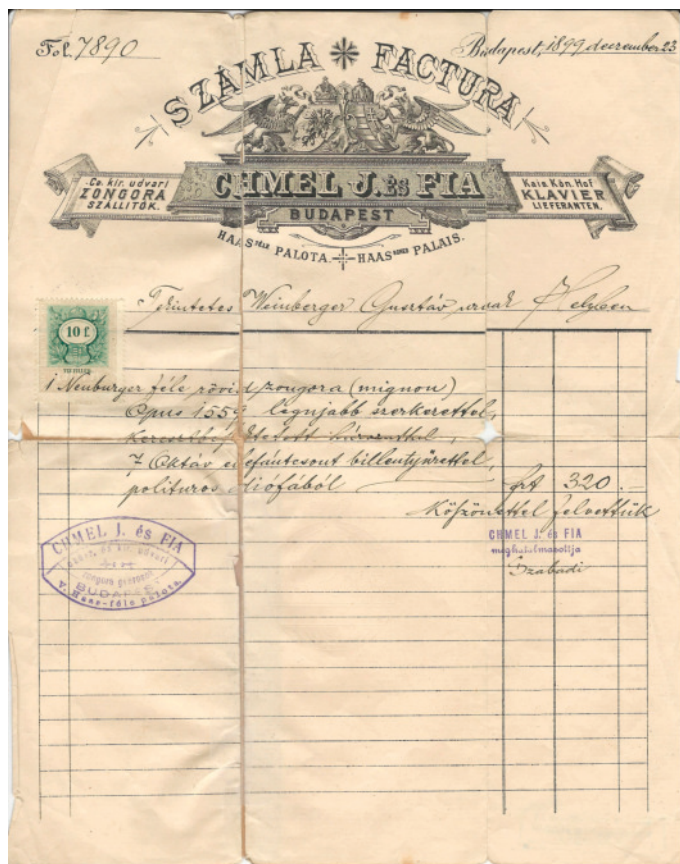 Fol. 7890
Budapest, 1899 december 23
SZÁMLA FACTURA
Cs. kir. udvari
ZONGORA
SZÁLLITÓK.
CHMEL J. ÉS FIA
BUDAPEST
Kais. Kön. Hof
KLAVIER
LIEFERANTEN.
HAAS PALOTA. HAAS PALAIS.
Tekintetes Weinberger Gusztáv urnak Helyben
10 f.
1 Neuburger féle rövid zongora (mignon)
Opus 1559 legujabb szerkezettel,
7 Oktáv elefántcsont billentyüzettel,
polituros diófából frt 320.—
Köszönettel felvettük
CHMEL J. és FIA
meghatalmazottja
Szabadi
CHMEL J. és FIA
császr. és kir. udvari
BUDAPEST
V. Haas-féle palota.